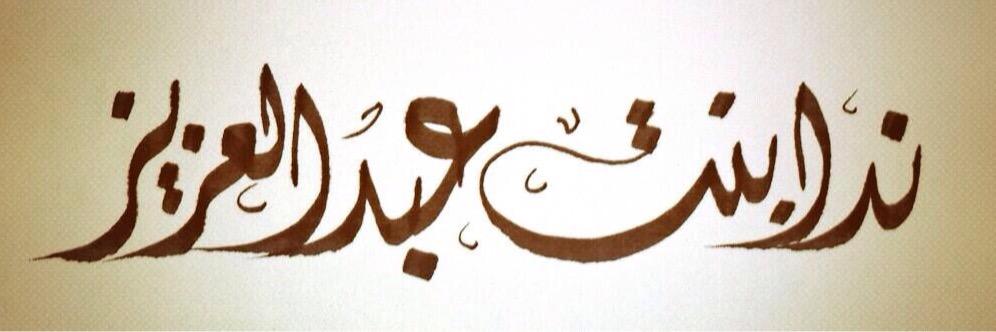 ندا بنت عبدالعزيز